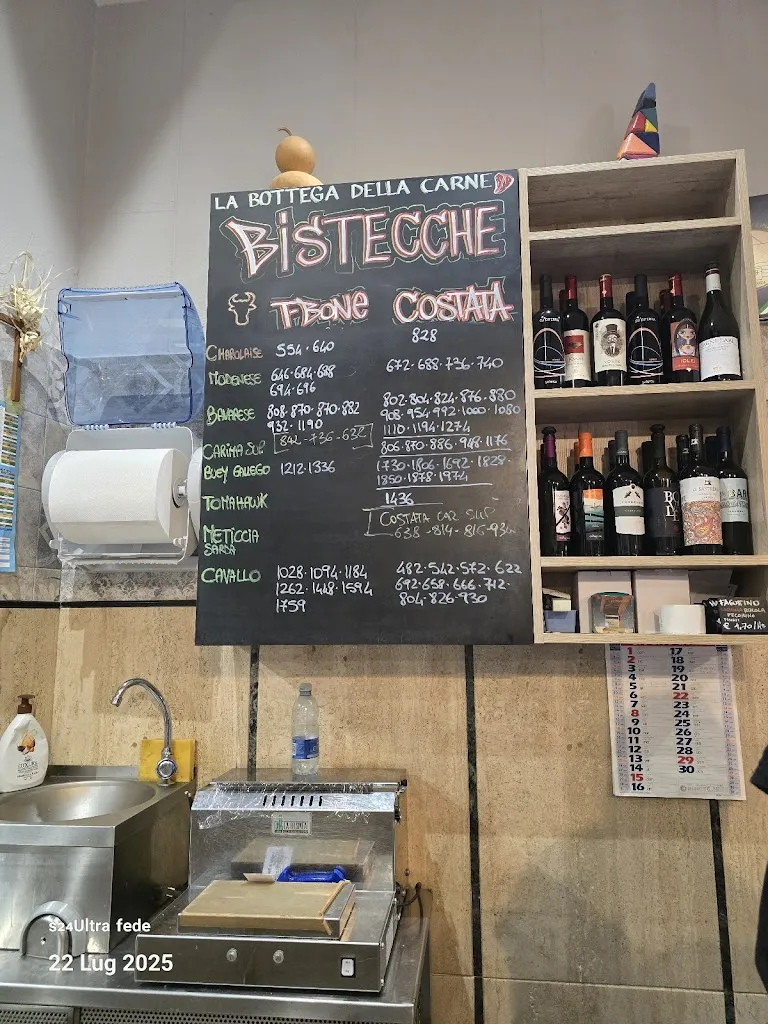 LA BOTTEGA DELLA CARNE
BISTECCHE
T-BONE COSTATA
828
CHAROLAISE 554·640
MODENESE 646·684·688 672·688·736·740
694·696
BAVARESE 808·870·870·882 802·804·824·876·880
932·1190 908·954·992·1000·1080
1110·1194·1274
CARIMA SUP 842-736-632 806·870·886·948·1176
BUEY GALLEGO 1212·1336 1730·1806·1692·1828·
1850·1878·1974
TOMAHAWK 1436
METICCIA COSTATA CAR SUP
SARDA 638-814-816-934
CAVALLO 1028·1094·1184 482·542·572·622
1262·1448·1594 692·658·666·712·
1759 804·826·930
PECORINO
€ 1,70/
1 17
2 18
3 19
4 20
5 21
6 22
7 23
8 24
9 25
10 26
11 27
12 28
13 29
14 30
15
16
S24Ultra fede
22 Lug 2025